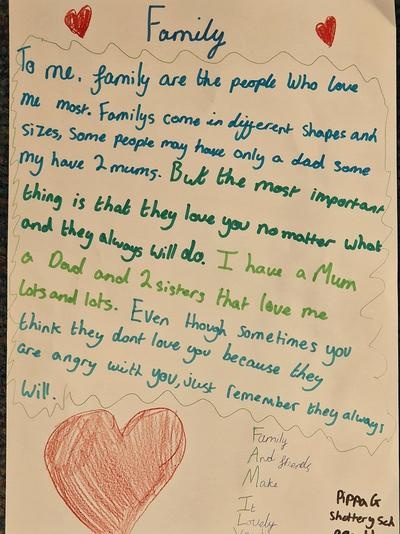 Family
To me, family are the people Who love
me most. Familys come in different shapes and
sizes, Some people may have only a dad some
my have 2 mums. But the most important
thing is that they love you no matter what
and they always will do. I have a Mum
a Dad and 2 sisters that love me
lots and lots. Even though sometimes you
think they dont love you because they
are angry with you, just remember they always
will.
Family
And friends
Make
It
Lovely
Pippa G
Shottery Sch